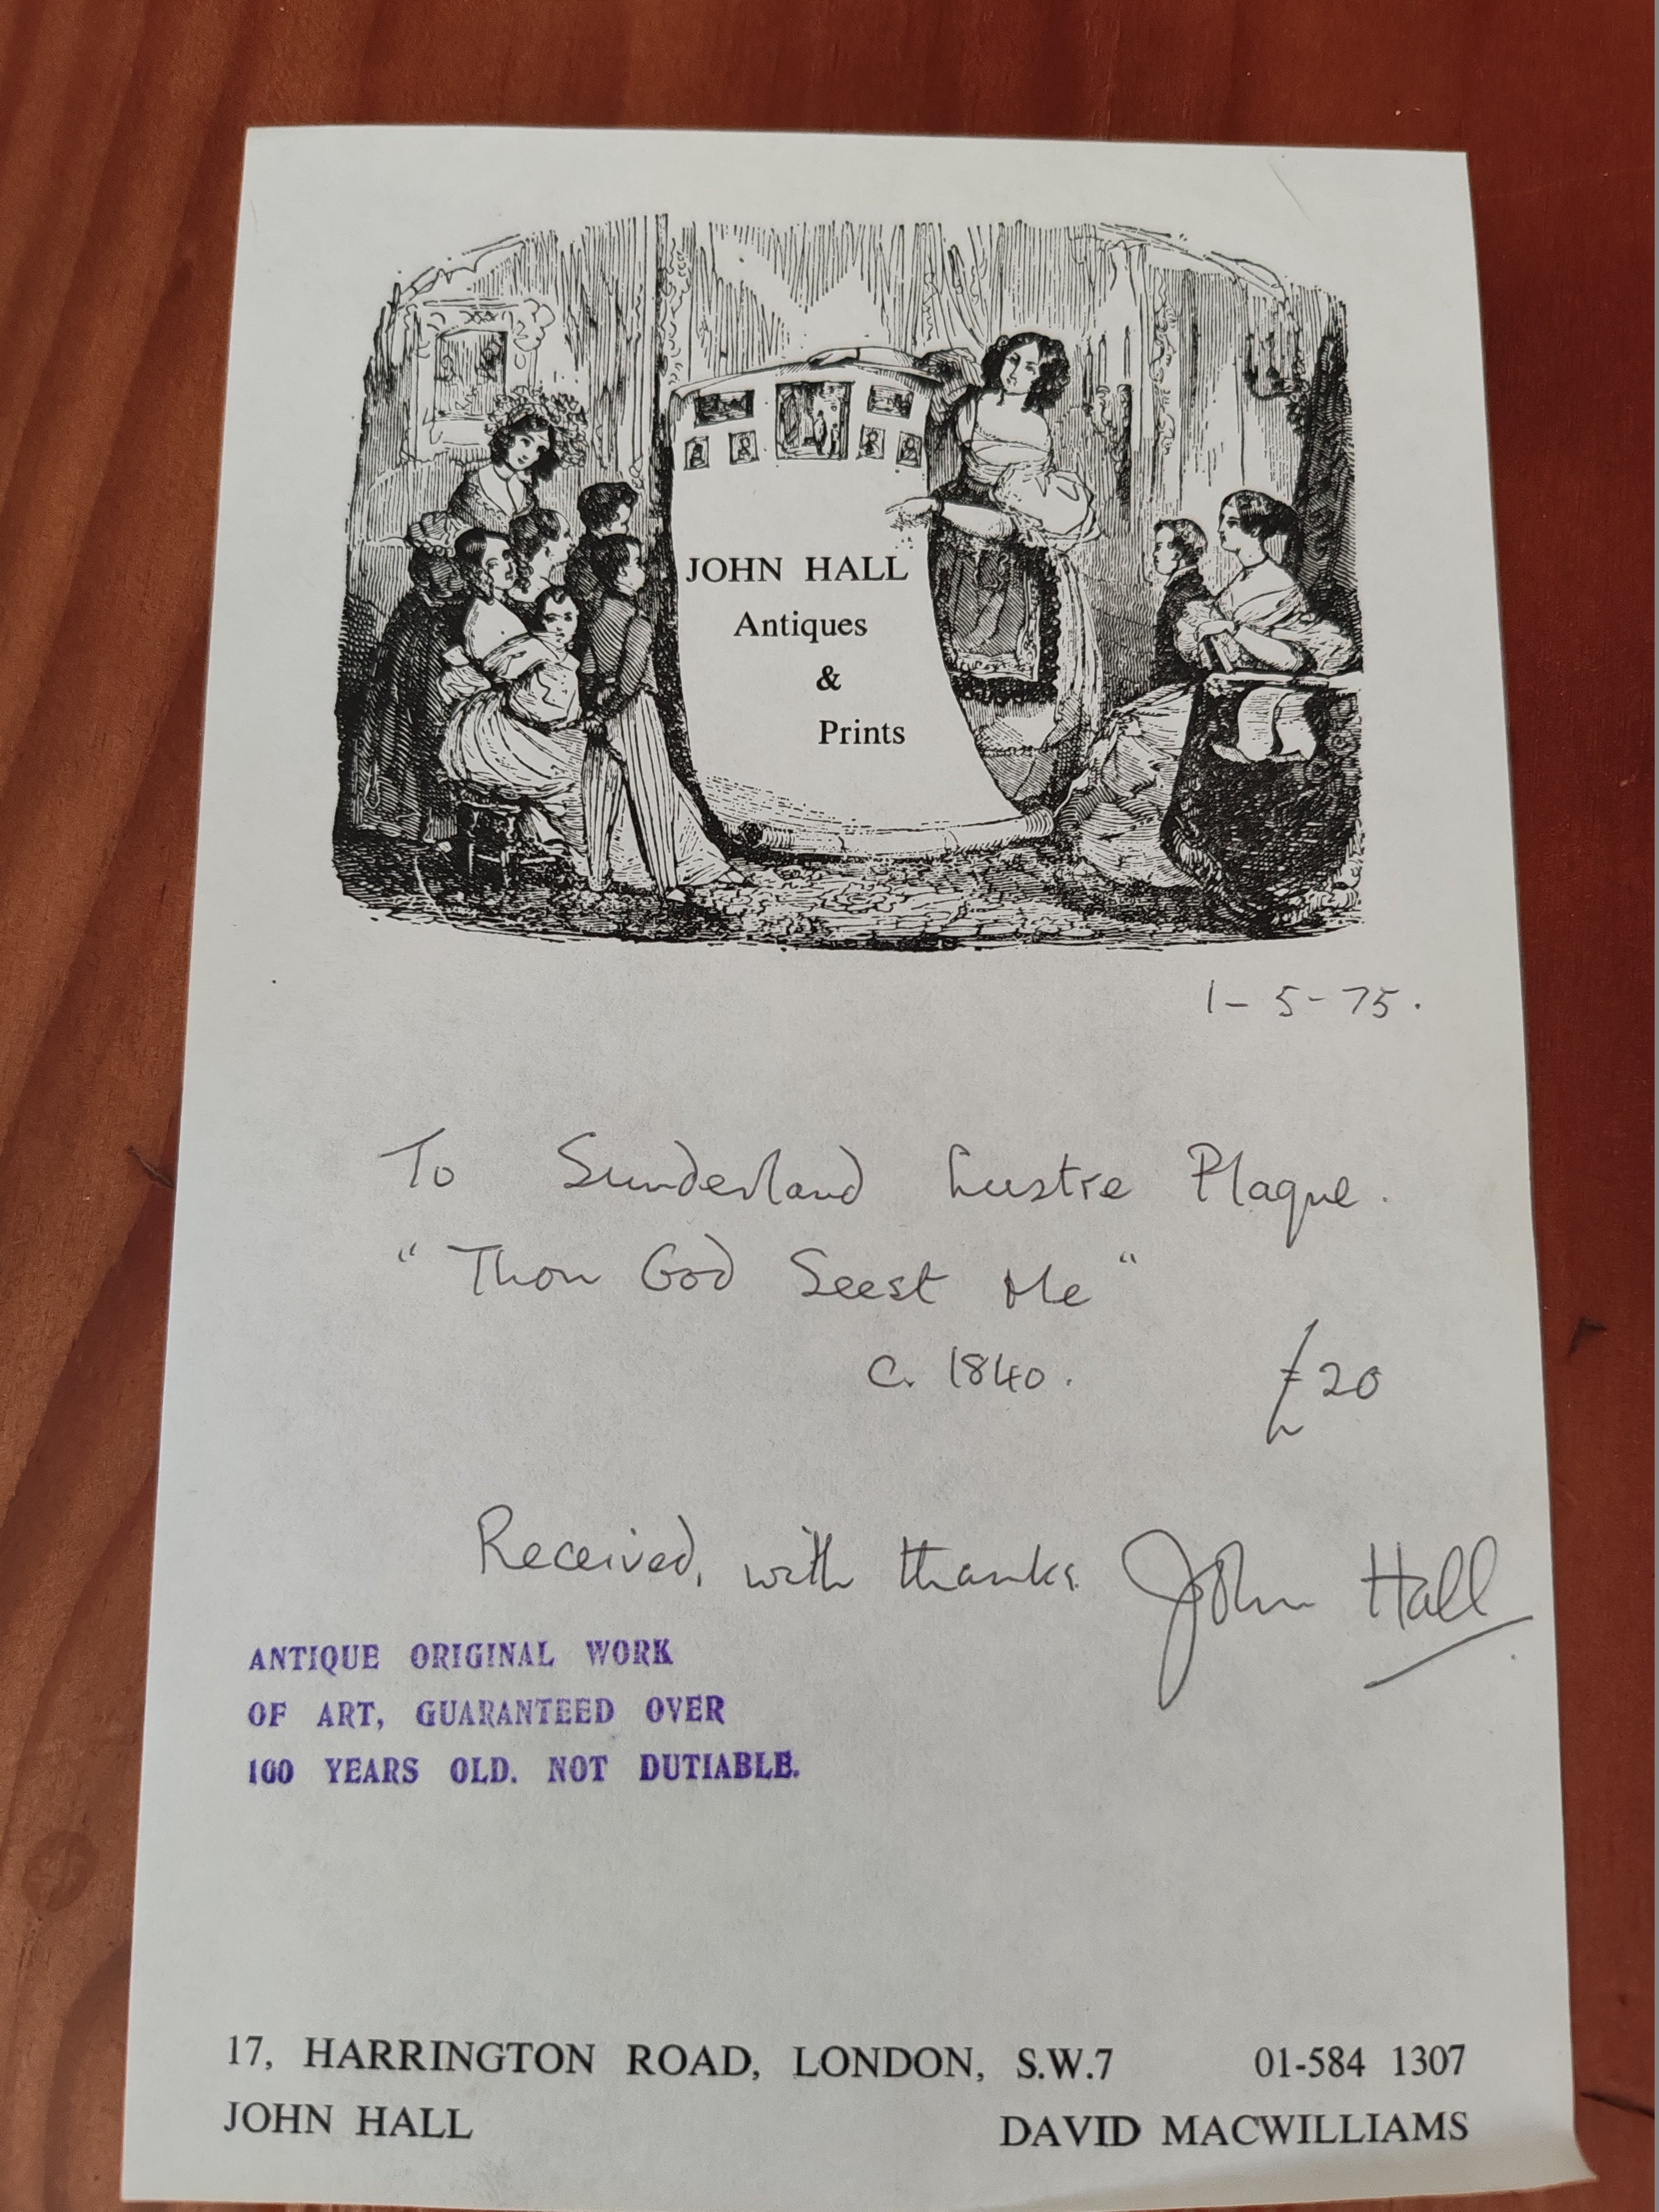 JOHN HALL
Antiques
&
Prints
1-5-75.
To Sunderland Lustre Plaque.
"Thou God Seest Me"
c. 1840. £20
Received, with thanks John Hall
ANTIQUE ORIGINAL WORK
OF ART, GUARANTEED OVER
100 YEARS OLD. NOT DUTIABLE.
17, HARRINGTON ROAD, LONDON, S.W.7 01-584 1307
JOHN HALL DAVID MACWILLIAMS